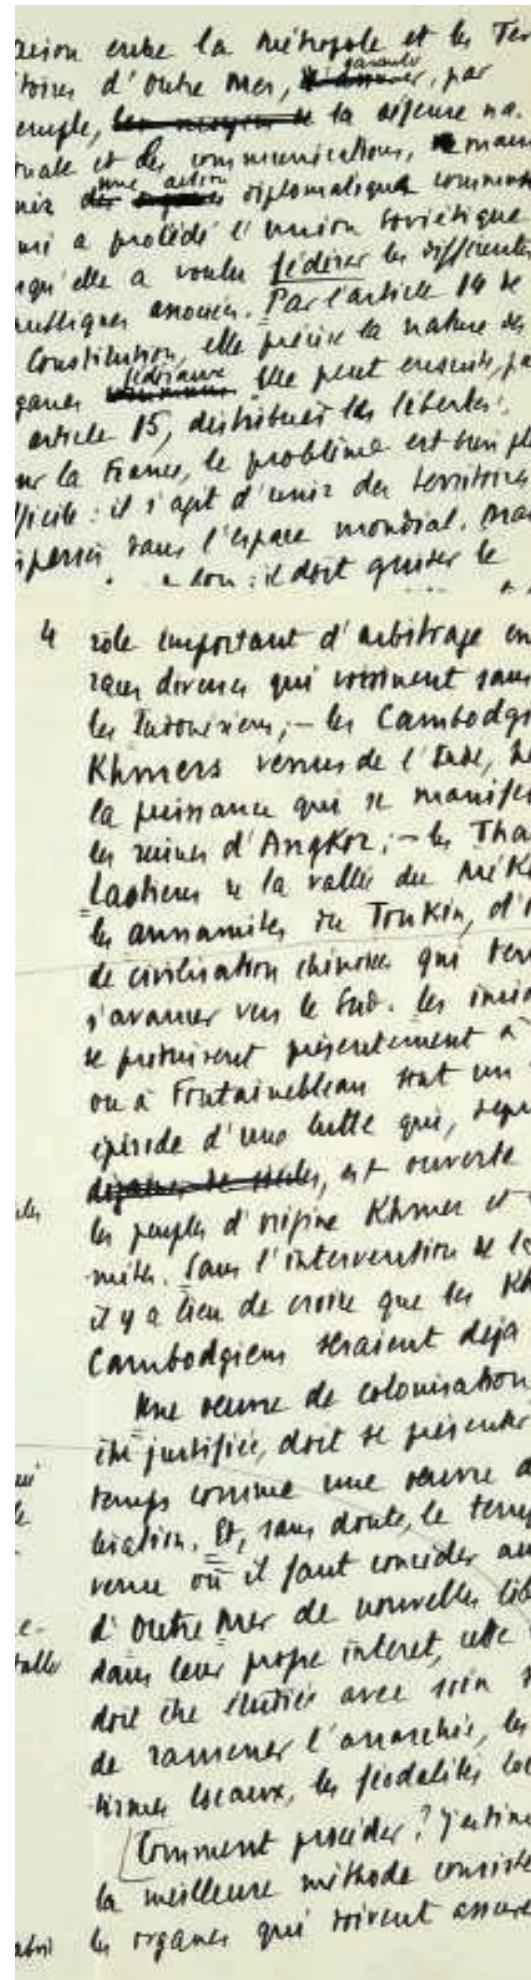 aison entre la Métropole et les Ter
toires d'Outre Mer, garantir, par
emple, la défense na.
onale et des communications, main
nir une action diplomatique commune
ui a procédé l'union soviétique
squ'elle a voulu fédérer les différentes
publiques associées. Par l'article 14 de
Constitution, elle précise la nature des
ganes fédéraux. Elle peut ensuite, pa
article 15, distribuer les libertés.
ur la France, le problème est bien pl
fficile : il s'agit d'unir des territoires
spersés dans l'espace mondial.
il doit
4 rôle important d'arbitrage en
races diverses qui voisinent dans
les Indonésiens ; – les Cambodgi
Khmers venus de l'Inde,
la puissance qui se manifes
les ruines d'Angkor ; – les Tha
Laotiens de la vallée du MéK
les annamites du Tonkin, d'
de civilisation chinoise qui ten
s'avancer vers le Sud. Les inci
se produisent présentement à
ou à Fontainebleau sont un
épisode d'une lutte qui, depu
dizaines de siècles, est ouverte
les peuples d'origine Khmer et
mites. Sans l'intervention de la
il y a lieu de croire que les Kh
Cambodgiens seraient déjà
Une oeuvre de colonisation
été justifiée, doit se présenter
temps comme une oeuvre d
Et, sans doute, le temp
venu où il faut concéder au
d'Outre Mer de nouvelles lib
dans leur propre intérêt, cette
doit être étudiée avec soin
de ramener l'anarchie, les
locaux, les féodalités loc
Comment procéder ? J'estime
la meilleure méthode consiste
les organes qui doivent assure